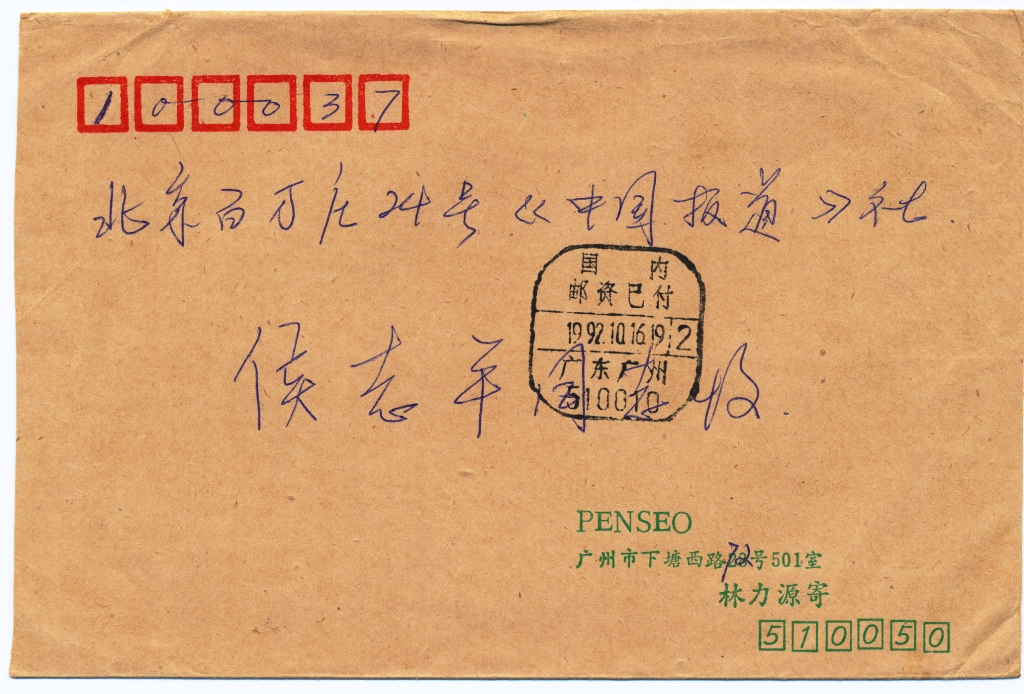 100037
北京百万庄24号《中国报道》社
侯志平同志收.
国内
邮资已付
1992.10.16.19 2
广东广州
510010
PENSEO
广州市下塘西路号501室
林力源寄
510050